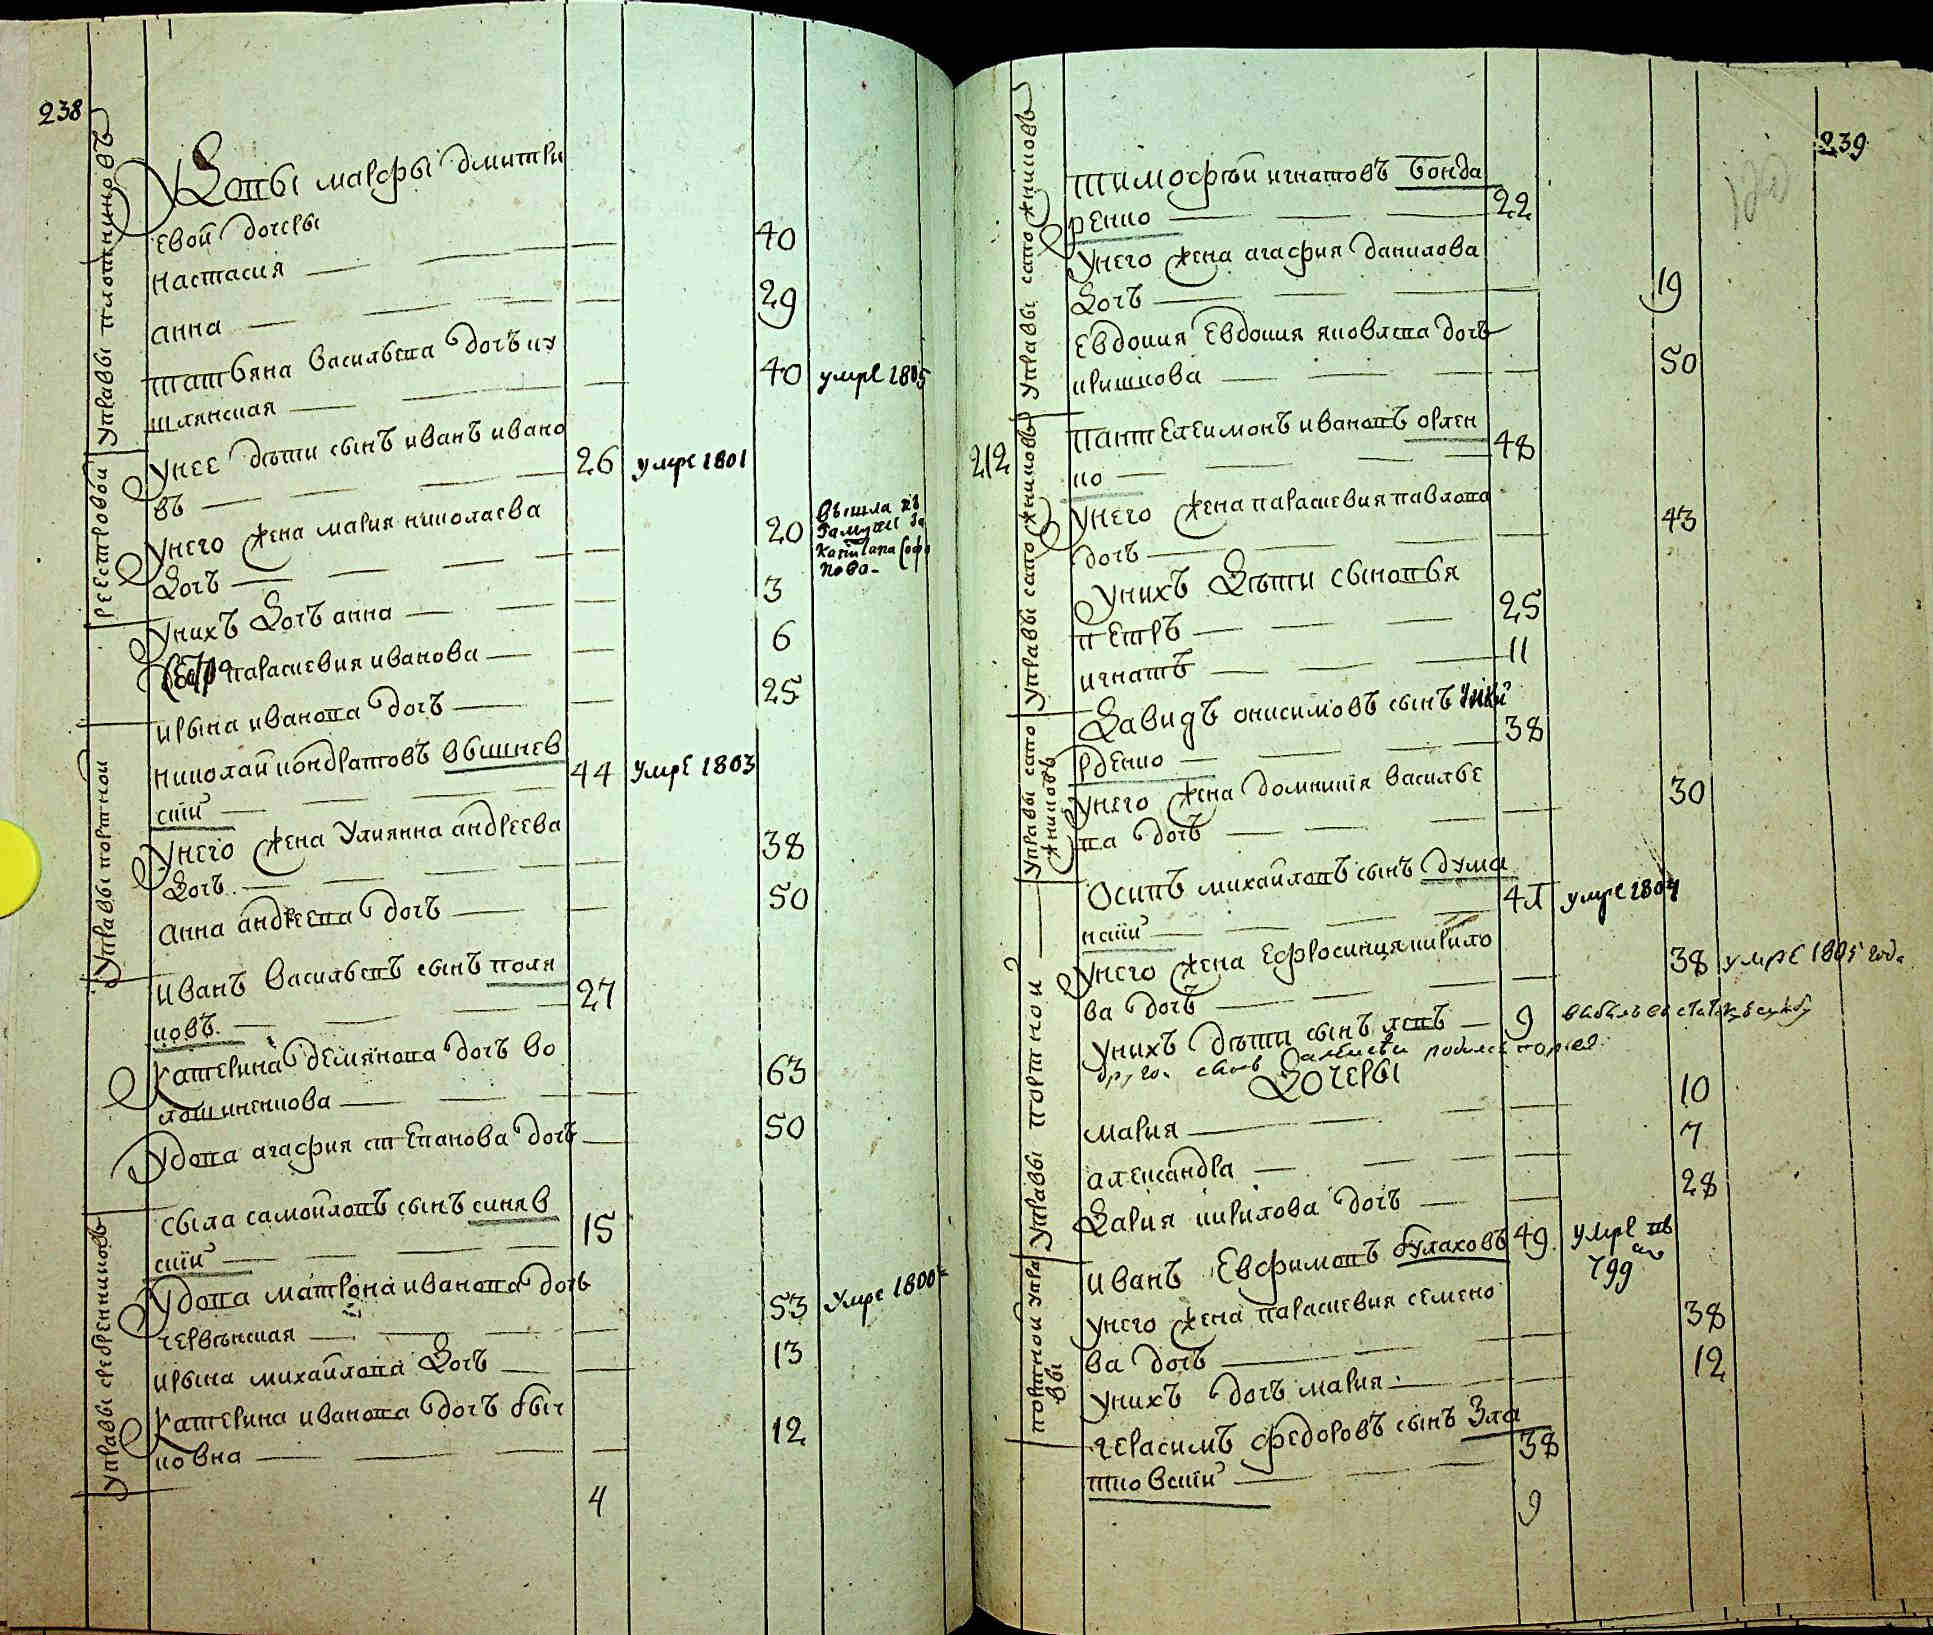 238
Управы плотниковъ
Вдовы марфы дмитри
евой дочеры
настасия 40
анна 29
татьяна васильева дочъ ку
шлянская 40 умре 1805
унее дѣти сынъ иванъ ивано
въ 26 умре 1801
реестровой
унего жена мария николаева
дочъ 20 вышла въ замужс за капитана
унихъ дочъ анна 3
сестра параскевия иванова 6
ирына иванова дочъ 25
Управы портной
николай кондратовъ вышнев
скій 44 умре 1803
унего жена улиянна андреева
дочъ 38
анна андреева дочъ 50
иванъ васильевъ сынъ поля
ковъ 27
катерина демянова дочъ во
лошиненкова 63
удова агафия степанова дочъ 50
Управы сребренниковъ
сыла самойловъ сынъ синяв
скій 15
удова матрона иванова дочь
червѣнская 53 умре 1800
ирына михайлова дочъ 13
катерина иванова дочъ быч
ковна 12
4
239
Управы сапожниковъ
тимофѣй игнатовъ бонда
ренко 22
унего жена агафия данилова
дочъ 19
евдокия евдокия яковлева дочъ
кришкова 50
212
Управы сапожниковъ
пантелеимонъ ивановъ орлен
ко 48
унего жена параскевия павлова
дочъ 43
унихъ дѣти сыновья
петръ 25
игнатъ 11
Управы сапожниковъ
давидъ онисимовъ сынъ
рденко 38
унего жена домникія василье
ва дочъ 30
Управы портной
осипъ михайловъ сынъ дума
нскій 41 умре 1804
унего жена ефросиния кирило
ва дочъ 38 умре 1805 года
унихъ дѣти сынъ левъ 9
другой сынъ родился
дочеры
мария 10
александра 7
дария кирилова дочъ 28
портной управы
иванъ евфимовъ булаховъ 49 умре въ
799
унего жена параскевия семено
ва дочъ 38
унихъ дочъ мария 12
герасимъ федоровъ сынъ зла
тковскій 38
9